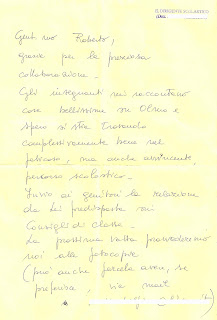 IL DIRIGENTE SCOLASTICO
Gent.mo Roberto,
grazie per la preziosa
collaborazione.
Gli insegnanti mi raccontano
cose bellissime su Olmo e
spero si stia trovando
complessivamente bene nel
faticoso, ma anche avvincente,
percorso scolastico.
Invio ai genitori la relazione
da Lei predisposta sui
Consigli di Classe.
La prossima volta provvederemo
noi alle fotocopie
(può anche farcela avere, se
preferisce, via mail